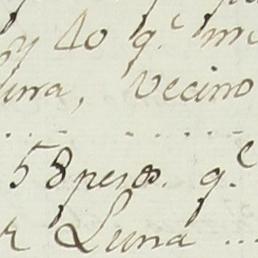 y 40 q.e
una, Vecino
58 pesos. q.e
Luna ...